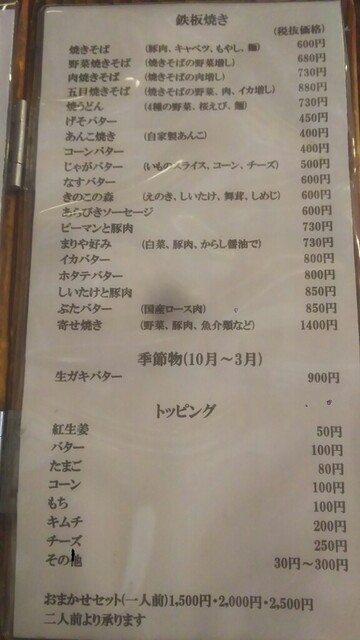 鉄板焼き
(税抜価格)
焼きそば (豚肉、キャベツ、もやし、麺) 600円
野菜焼きそば (焼きそばの野菜増し) 680円
肉焼きそば (焼きそばの肉増し) 730円
五目焼きそば (焼きそばの野菜、肉、イカ増し) 880円
焼うどん (4種の野菜、桜えび、麺) 730円
げそバター 450円
あんこ焼き (自家製あんこ) 400円
コーンバター 400円
じゃがバター (いものスライス、コーン、チーズ) 500円
なすバター 600円
きのこの森 (えのき、しいたけ、舞茸、しめじ) 600円
あらびきソーセージ 600円
ピーマンと豚肉 730円
まりや好み (白菜、豚肉、からし醤油で) 730円
イカバター 800円
ホタテバター 800円
しいたけと豚肉 850円
ぶたバター (国産ロース肉) 850円
寄せ焼き (野菜、豚肉、魚介類など) 1400円
季節物(10月～3月)
生ガキバター 900円
トッピング
紅生姜 50円
バター 100円
たまご 80円
コーン 100円
もち 100円
キムチ 200円
チーズ 250円
その他 30円～300円
おまかせセット(一人前)1,500円・2,000円・2,500円
二人前より承ります